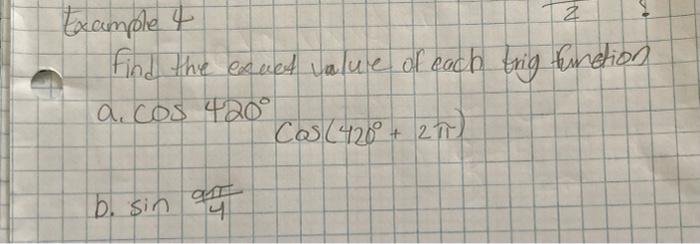 2
Example 4
find the exact value of each trig function
a. cos 420°
Cos(420° + 2π)
b. sin 9π/4